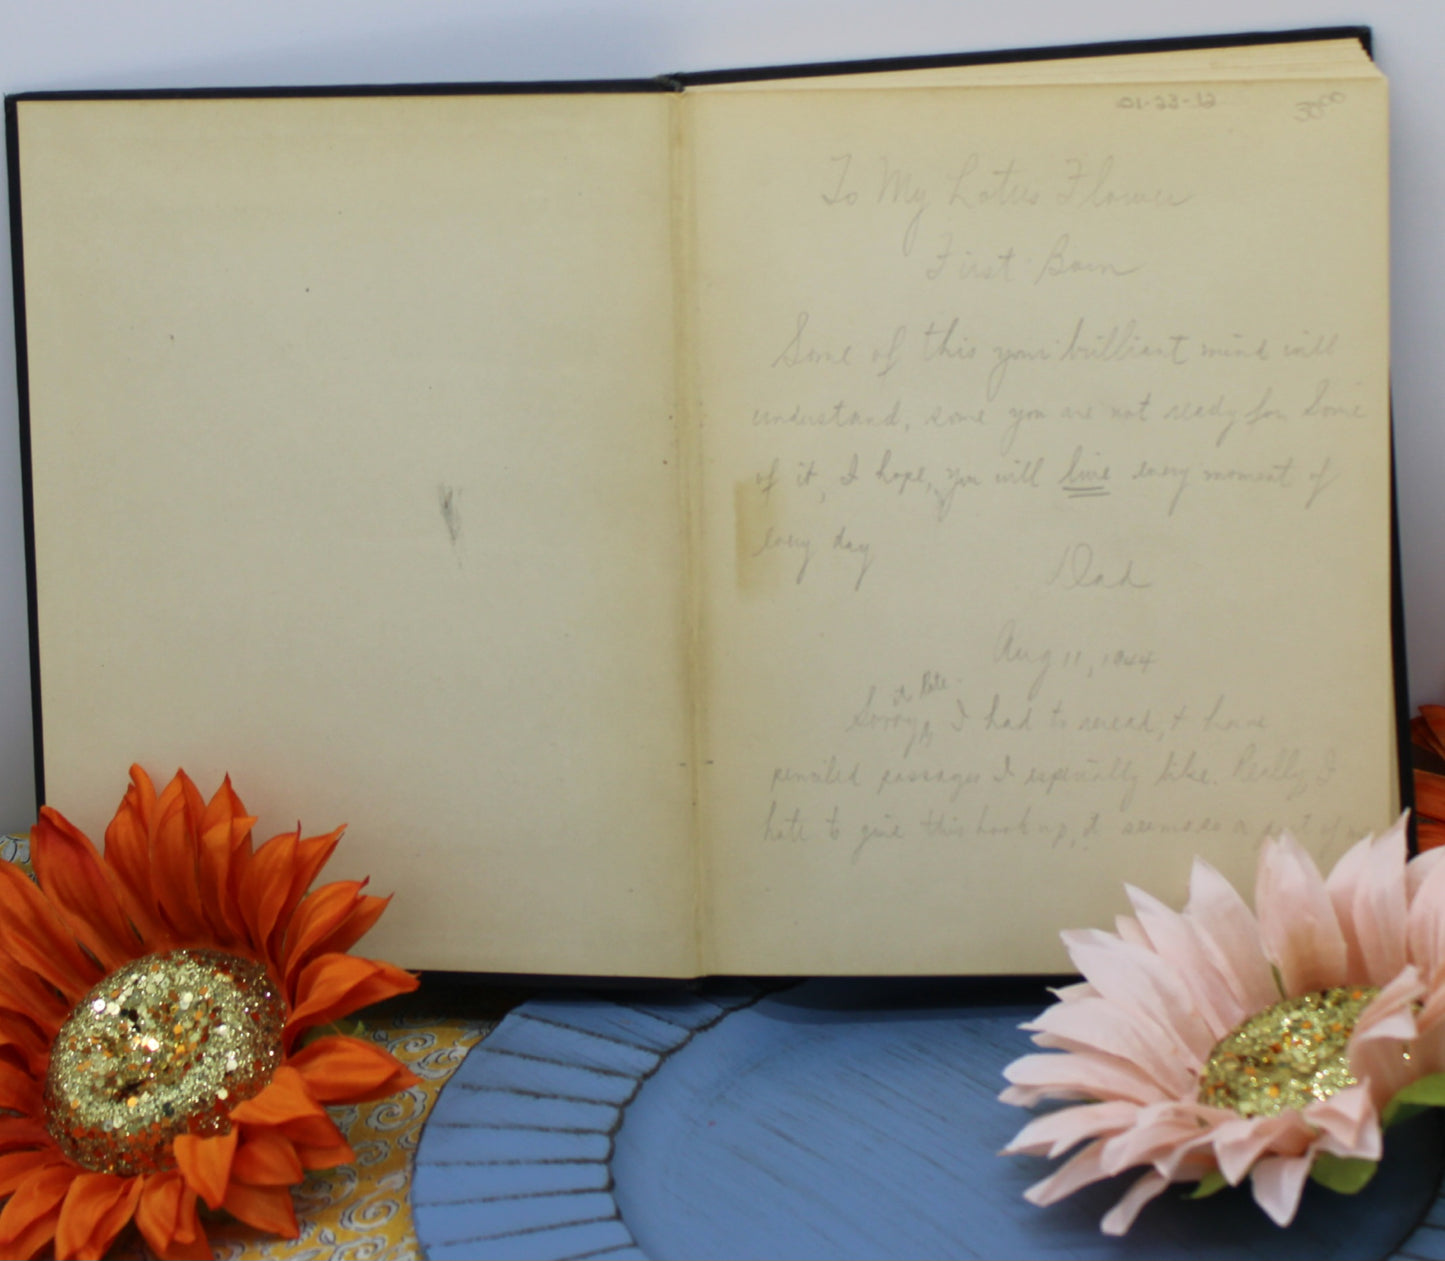 01-23-12
30.00
To My Lotus Flower
First Born
Some of this your brilliant mind will
understand, some you are not ready for Some
of it, I hope, you will live every moment of
every day
Dad
Aug 11, 1944
Sorry, I had to reread, & have
penciled passages I especially like. Really, I
hate to give this book up, it seems so a part of me